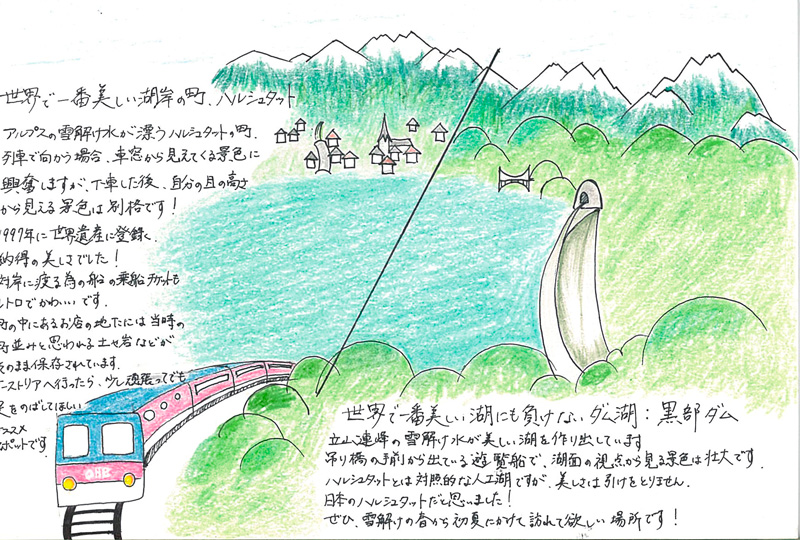 世界で一番美しい湖岸の町、ハルシュタット
アルプスの雪解け水が漂うハルシュタットの町。
列車で向かう場合、車窓から見えてくる景色に
興奮しますが、下車した後、自分の目の高さ
から見える景色は別格です!
1997年に世界遺産に登録。
納得の美しさでした!
対岸に渡る為の船の乗船チケットも
レトロでかわいいです。
町の中にあるお店の地下には当時の
町並みと思われる土や岩などが
そのまま保存されています。
オーストリアへ行ったら、少し頑張ってでも
足をのばしてほしい
オススメ
スポットです
ÖBB
世界で一番美しい湖にも負けないダム湖:黒部ダム
立山連峰の雪解け水が美しい湖を作り出しています
吊り橋の手前から出ている遊覧船で、湖面の視点から見る景色は壮大です。
ハルシュタットとは対照的な人工湖ですが、美しさは引けをとりません。
日本のハルシュタットだと思いました!
ぜひ、雪解けの春から初夏にかけて訪れて欲しい場所です!